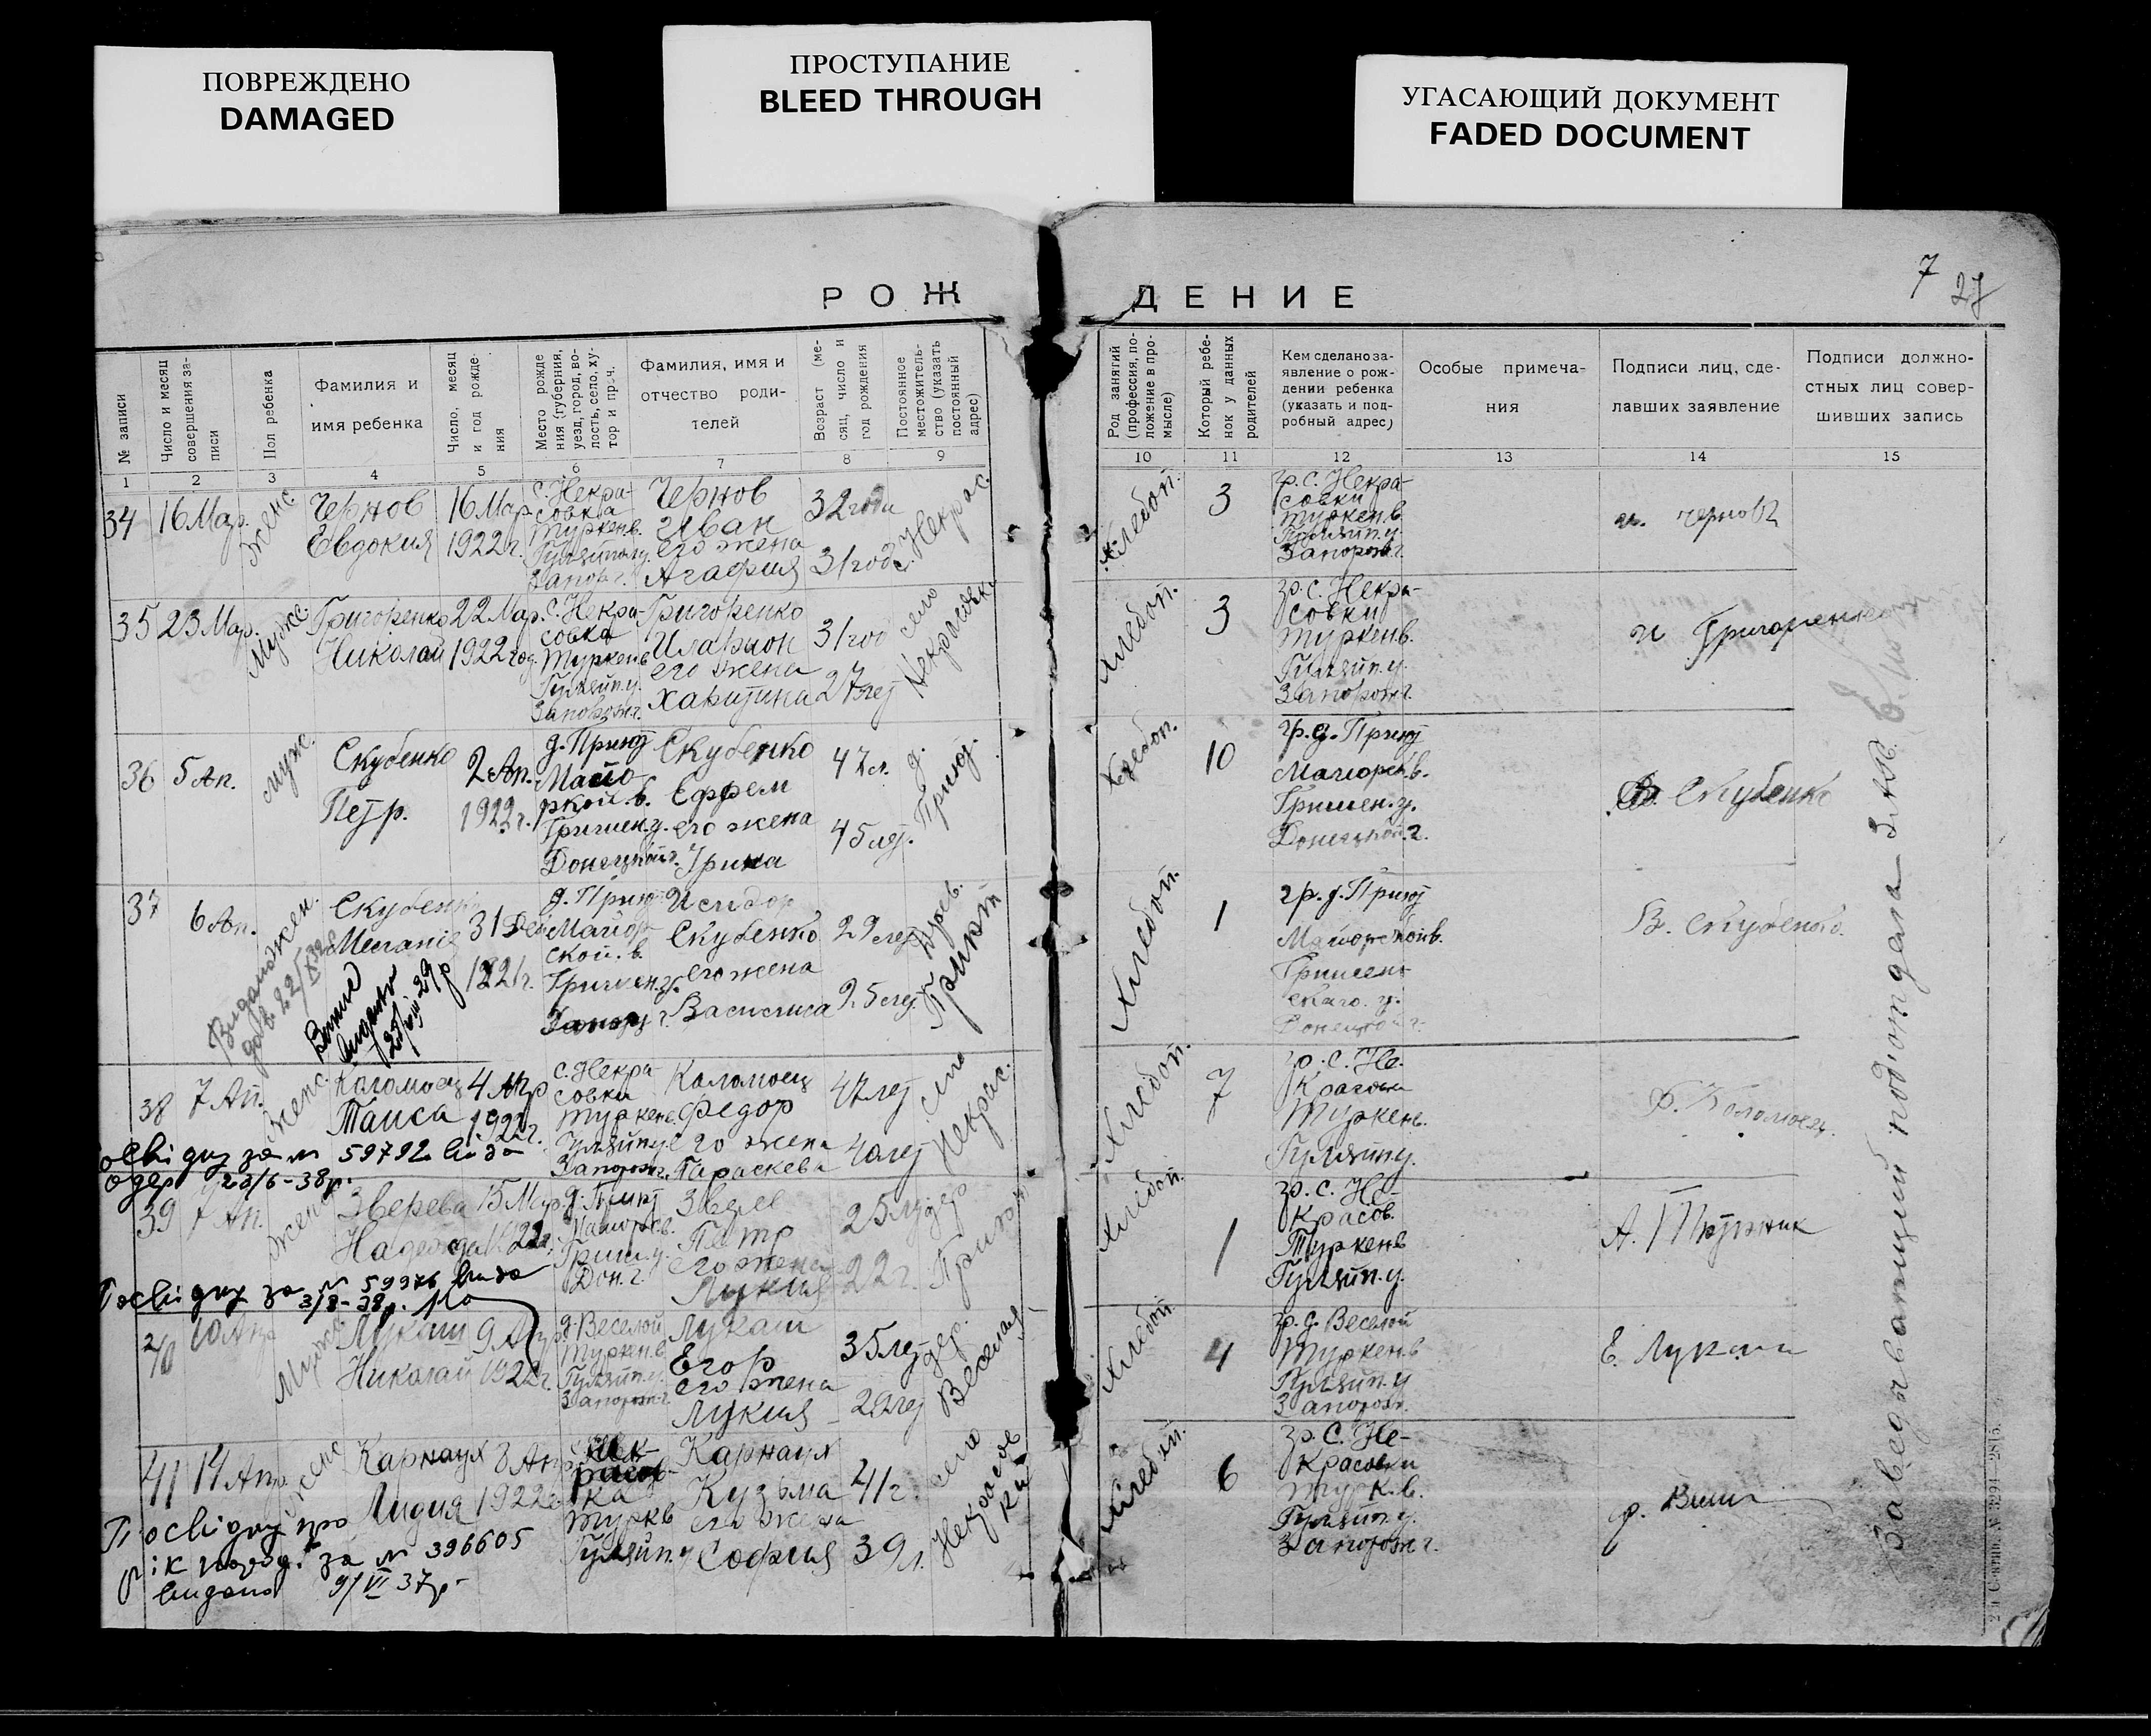 ПОВРЕЖДЕНО
DAMAGED
ПРОСТУПАНИЕ
BLEED THROUGH
УГАСАЮЩИЙ ДОКУМЕНТ
FADED DOCUMENT
7
27
РОЖДЕНИЕ
№ записи
Число и месяц совершения записи
Пол ребенка
Фамилия и имя ребенка
Число, месяц и год рождения
Место рождения (губерния, уезд, город, волость, село, хутор и проч.
Фамилия, имя и отчество родителей
Возраст (месяц, число и год рождения
Постоянное местожительство (указать постоянный адрес)
Род занятий (профессия, положение в промысле)
Который ребенок у данных родителей
Кем сделано заявление о рождении ребенка (указать и подробный адрес)
Особые примечания
Подписи лиц, сделавших заявление
Подписи должностных лиц совершивших запись
1 2 3 4 5 6 7 8 9 10 11 12 13 14 15
34 16 Мар. Женс. Чернов Евдокия 16 Мар. 1922 г.
с. Некрасовка Туркен.в. Гуляйп.у. Запор.г.
Чернов Иван его жена Агафия
32 года 31 год с. Некрас.
Хлебоп. 3
гр. с. Некрасовки Туркен.в. Гуляйп.у. Запорож.г.
35 23 Мар. Мужс. Григоренко Николай 22 Мар. 1922 год.
с. Некрасовка Туркен.в Гуляйп.у. Запорож.г.
Григоренко Иларион его жена Харитина
31 год 27 лет село Некрасовк.
Хлебоп. 3
гр. с. Некрасовки Туркен.в. Гуляйп.у. Запорож.г.
и Григоренко
36 5 Ап. мужс. Скубенко Петр. 2 Ап. 1922 г.
д. Приют Майоркой.в. Гришен.у. Донецкой г.
Скубенко Ефрем его жена Ирина
47 л. 45 лет. д. Приют.
Хлебоп. 10
гр. д. Приют Маиорск.в. Гришен.у. Донецкой.г.
Скубенко
37 6 Ап. жен. Скубенко Мелания 31 Дек 1921 г.
д. Приют Майорской.в. Гришен.у.
Исидор Скубенко его жена Василиса
29 лет 25 лет Дерев. Приют
Хлебоп. 1
гр. д. Приют Майорской в. Гришенскаго.у. Донецкой г.
В. Скубенко.
38 7 Ап. женс. Коломоец Таиса 4 Апр 1922 г.
с. Некрасовки Туркен.в Гуляйп.у Запорож.г.
Коломоец Федор его жена Параскева
47 лет 40 лет село Некрас.
Хлебоп. 7
гр. с. Некрасовки Туркен.в. Гуляйп.у.
Ф. Коломоец.
за № 59792 видано
23/6-38р.
39 7 Ап. женс Зверева Надежда 15 Мар. 1922 г.
д. Приют Маиорс.в. Гриш.у. Дон.г
Петр его жена Лукия
25 лет 22 г. дер Приют
Хлебоп. 1
гр. с. Некрасов. Туркен.в Гуляйп.у.
за № 59976 видано
3/8-38р.
40 10 Апр Мужс. Лукаш Николай 9 Апр 1922 г.
д. Веселой Туркен.в Гуляйп.у. Запорож.г
Лукаш Егор его жена Лукия
35 лет 29 лет дер. Веселая
Хлебоп. 4
гр. д. Веселой Туркен.в Гуляйп.у Запорож.
Е. Лукаш
41 14 Апр. женс Карнаух Лидия 3 Апр 1922 г.
с. Некрасовка Турк.в Гуляйп.у
Карнаух Кузьма его жена София
41 г. 39 л. село Некрасовка
Хлебоп. 6
гр. с. Некрасовки Турк.в. Гуляйп.у. Запорож г.
Посвідку про рік народ. за № 396605
видано 9/VI 37р-
Заведывающий подотдела ЗАГС.